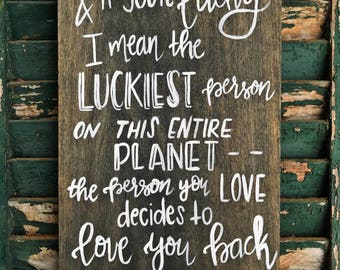 & lucky
I mean the
LUCKIEST person
ON THIS ENTIRE
PLANET --
the person you LOVE
decides to
love you back